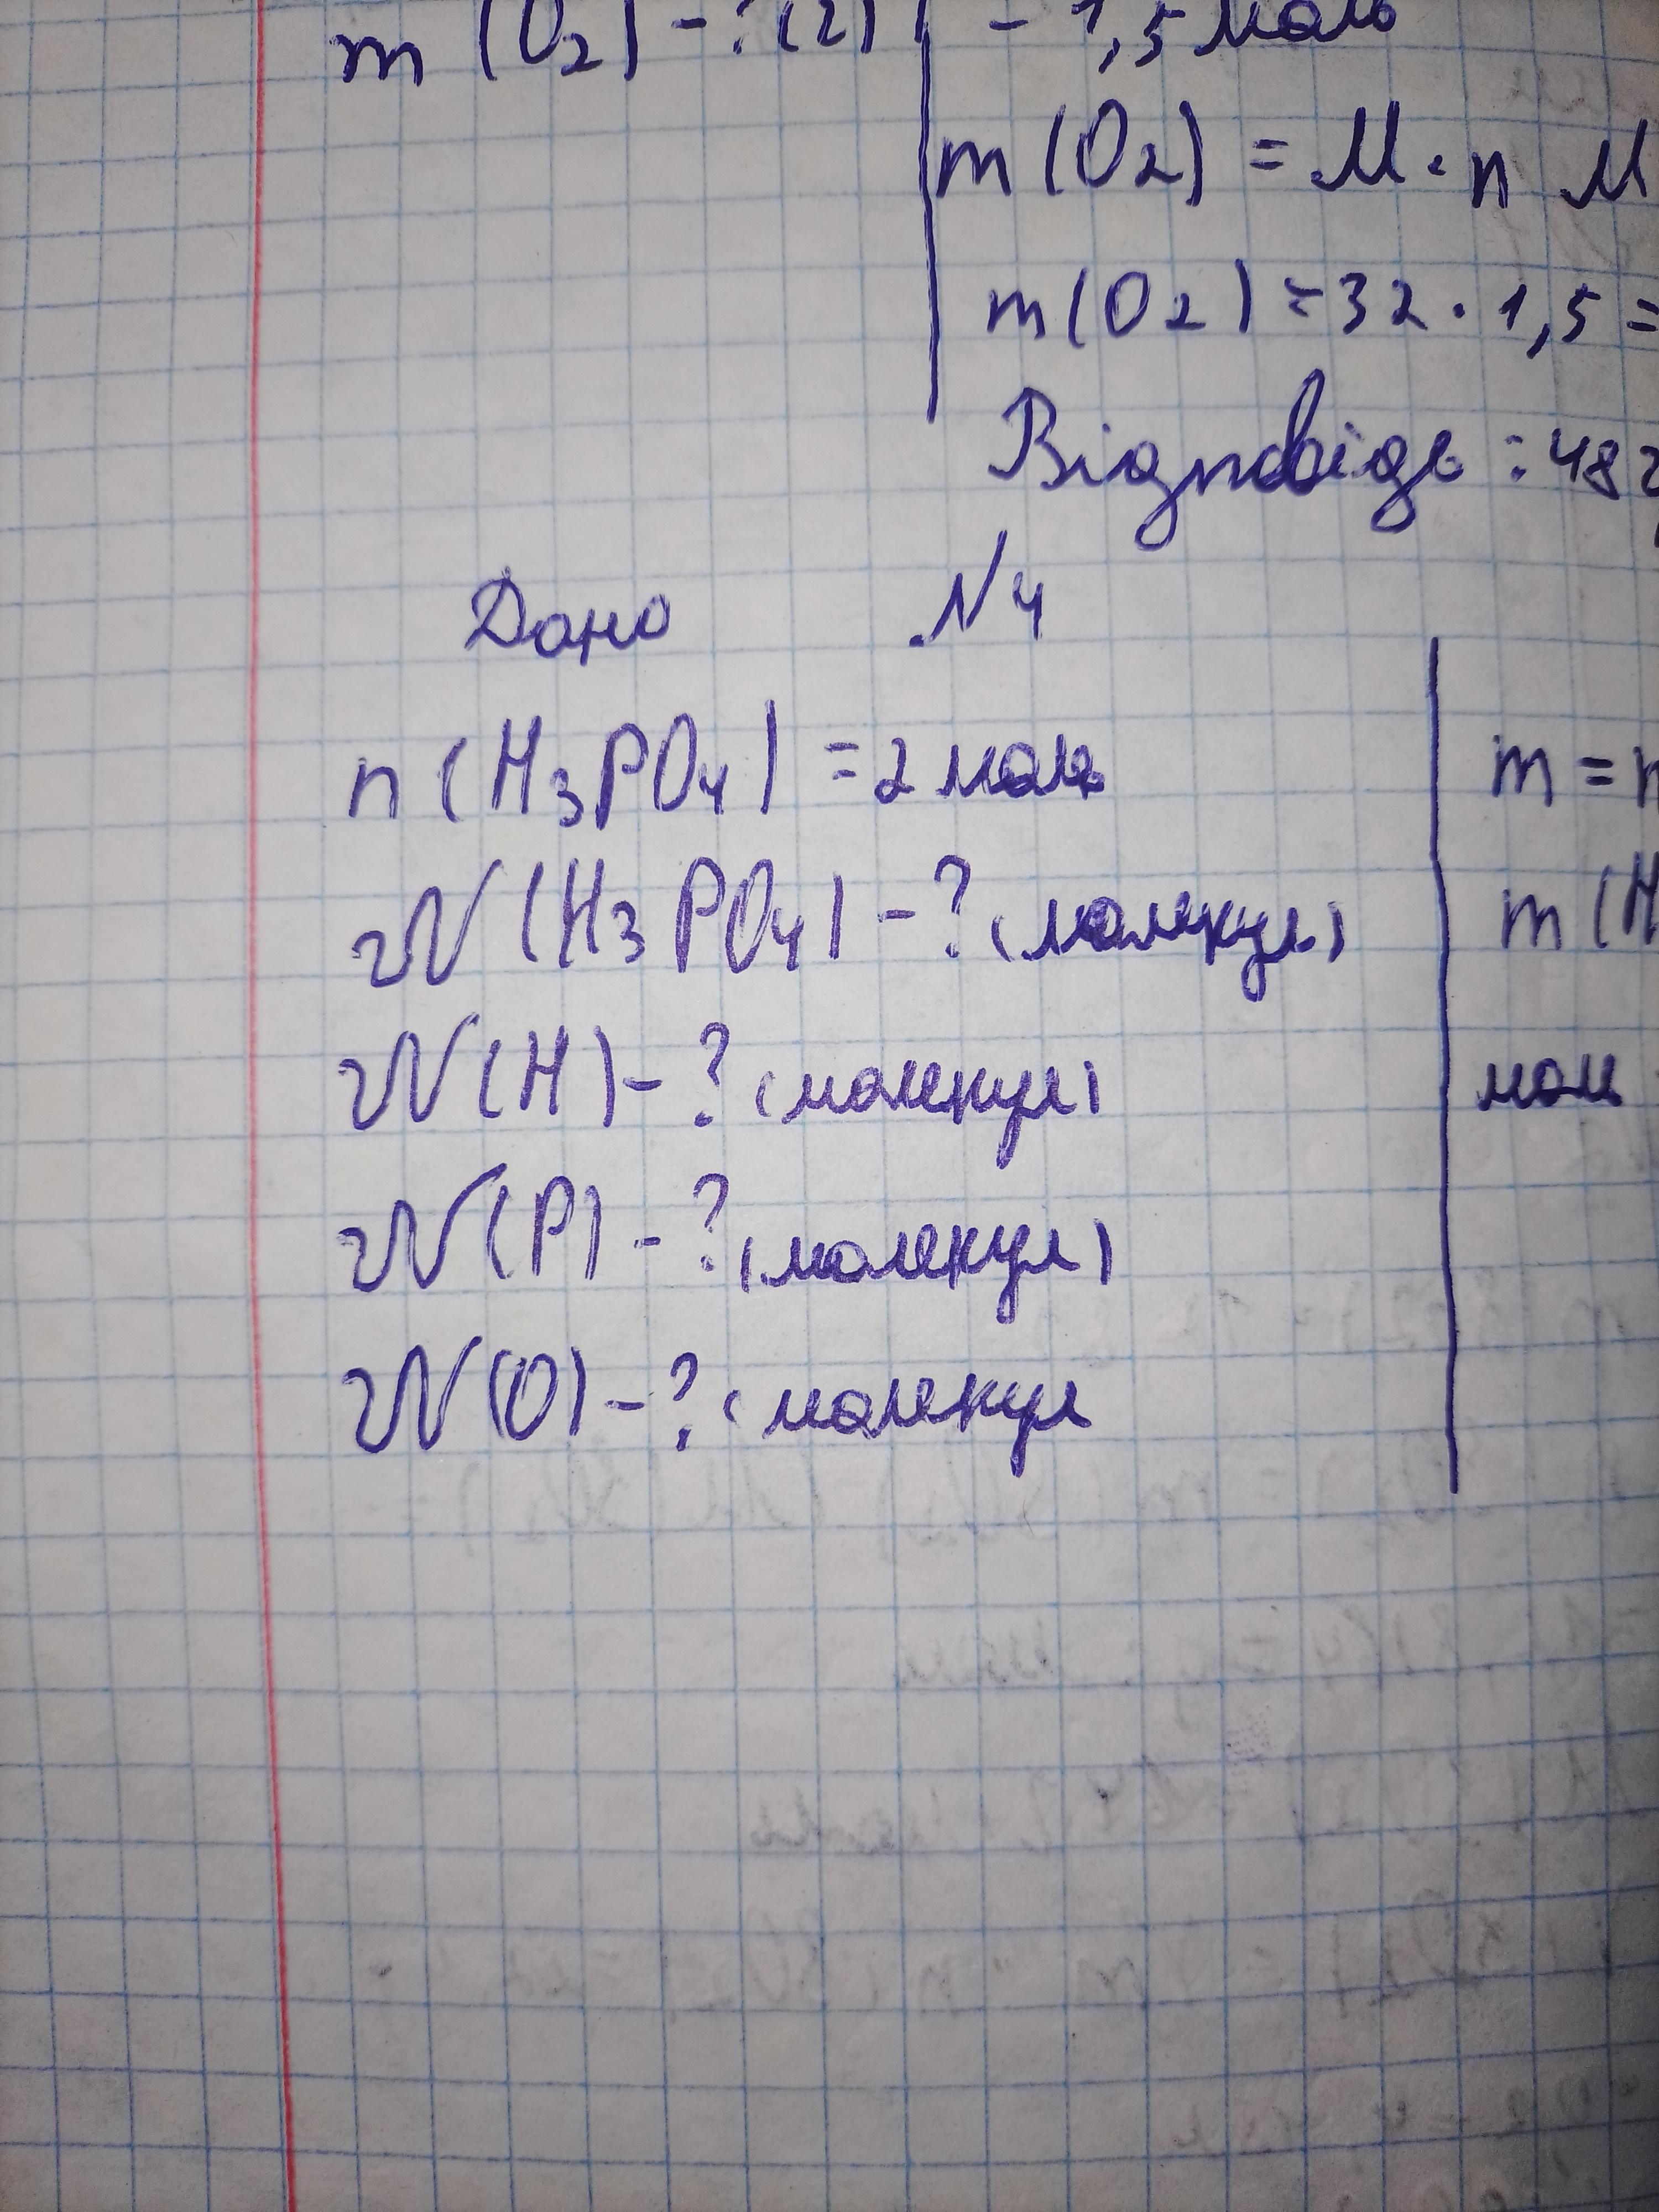 m (O2) - ? (г) = 1,5 моль
m (O2) = M · n M
m (O2) = 32 · 1,5 =
Відповідь : 48 г
Дано №4
n (H3PO4) = 2 моль
N (H3PO4) - ? (молекул)
N (H) - ? (молекул)
N (P) - ? (молекул)
N (O) - ? (молекул
m = n
m (H
моль